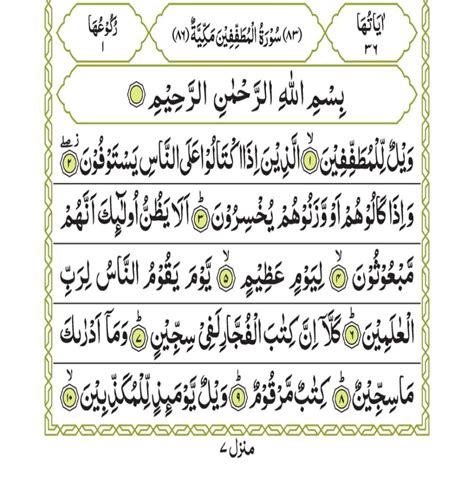 اٰيَاتُهَا ٣٦
(٨٣) سُوْرَةُ الْمُطَفِّفِيْنَ مَكِّيَّةٌ (٨٦)
رُكُوْعُهَا ١
بِسْمِ اللهِ الرَّحْمٰنِ الرَّحِيْمِ
وَيْلٌ لِّلْمُطَفِّفِيْنَ ۙ﴿١﴾ الَّذِيْنَ اِذَا اكْتَالُوْا عَلَى النَّاسِ يَسْتَوْفُوْنَ ﴿٢﴾
وَاِذَا كَالُوْهُمْ اَوْ وَّزَنُوْهُمْ يُخْسِرُوْنَ ؕ﴿٣﴾ اَلَا يَظُنُّ اُولٰٓئِكَ اَنَّهُمْ
مَّبْعُوْثُوْنَ ۙ﴿٤﴾ لِيَوْمٍ عَظِيْمٍ ۙ﴿٥﴾ يَّوْمَ يَقُوْمُ النَّاسُ لِرَبِّ
الْعٰلَمِيْنَ ؕ﴿٦﴾ كَلَّاۤ اِنَّ كِتٰبَ الْفُجَّارِ لَفِيْ سِجِّيْنٍ ؕ﴿٧﴾ وَمَاۤ اَدْرٰىكَ
مَا سِجِّيْنٌ ؕ﴿٨﴾ كِتٰبٌ مَّرْقُوْمٌ ؕ﴿٩﴾ وَيْلٌ يَّوْمَئِذٍ لِّلْمُكَذِّبِيْنَ ۙ﴿١٠﴾
منزل ٧